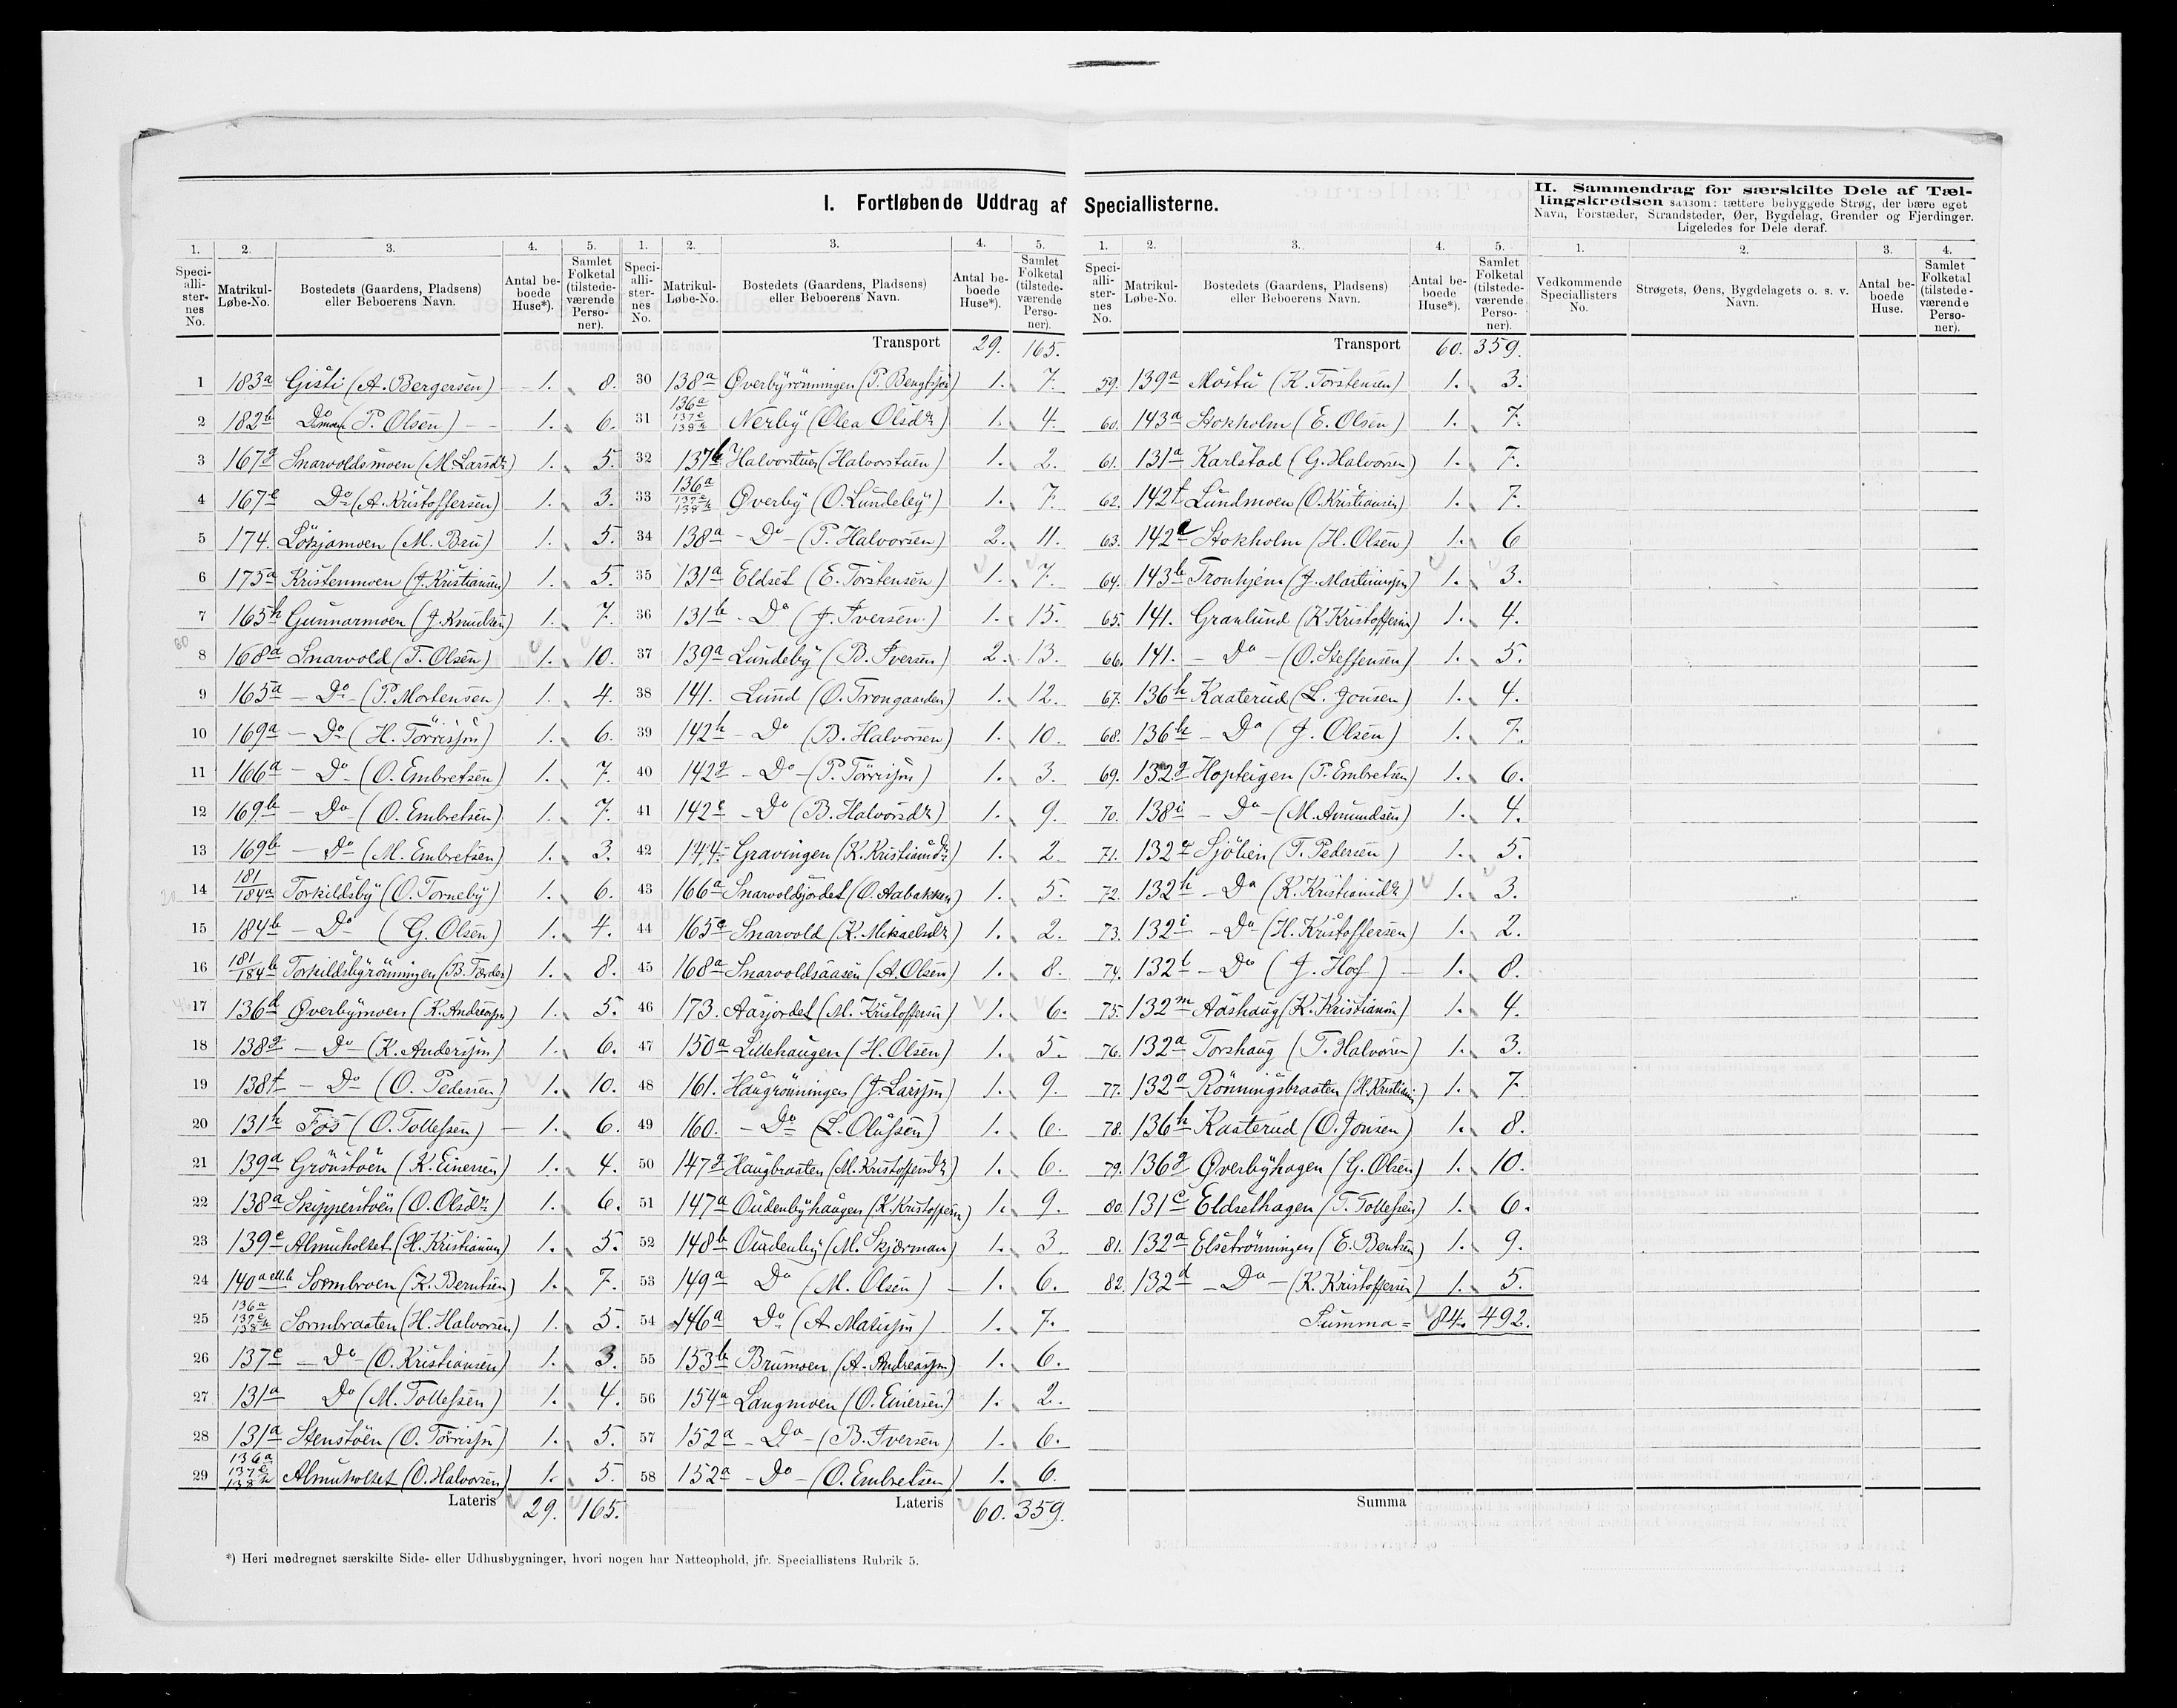 I. Fortløbende Uddrag af Speciallisterne.
II. Sammendrag for særskilte Dele af Tællingskredsen saasom: tættere bebyggede Strøg, der bære eget Navn, Forstæder, Strandsteder, Øer, Bygdelag, Grender og Fjerdinger. Ligeledes for Dele deraf.
1. 2. 3. 4. 5.
Speciallisternes No. Matrikul-Løbe-No. Bostedets (Gaardens, Pladsens) eller Beboerens Navn. Antal beboede Huse*). Samlet Folketal (tilstedeværende Personer).
1 183a Gisti (A. Bergersen) 1. 8.
2 182b Do moen (P. Olsen) 1. 6.
3 167g Snarvoldsmoen (M. Larsdr) 1. 5.
4 167e Do (A. Kristoffersen) 1. 3.
5 174. Lökjamoen (M. Bru) 1. 5.
6 175a Kristenmoen (J. Kristiansen) 1. 5.
7 165h Gunnarmoen (J. Knudsen) 1. 7.
8 168a Snarvold (T. Olsen) 1. 10.
9 165a - Do - (P. Mortensen) 1. 4.
10 169a - Do (H. Törrissen) 1. 6.
11 166a - Do - (O. Embretsen) 1. 7.
12 169b - Do - (O. Embretsen) 1. 7.
13 169b - Do - (M. Embretsen) 1. 3.
14 181/184a Torkildsby (O. Torneby) 1. 6.
15 184b - Do - (G. Olsen) 1. 4.
16 181/184b Torkildsbyrönningen (B. Færder) 1. 8.
17 136d Øverbymoen (K. Andersen) 1. 5.
18 138g - Do - (K. Andersen) 1. 6.
19 138f - Do - (O. Pedersen) 1. 10.
20 131h Fos (O. Tollefsen) 1. 6.
21 139a Grönstöen (K. Einersen) 1. 4.
22 138a Skipperstöen (O. Olsdr) 1. 6.
23 139e Almuholtet (H. Kristiansen) 1. 5.
24 140a Sormbroen (K. Berntsen) 1. 7.
25 136a 137e 138h Sormbraaten (H. Halvorsen) 1. 5.
26 137e - Do - (O. Kristiansen) 1. 3.
27 131a Do (M. Tollefsen) 1. 4.
28 131a Stenstöen (O. Törrissen) 1. 5.
29 136a 137e 138h Almuholtet (O. Halvorsen) 1. 5.
Lateris 29. 165.
1. 2. 3. 4. 5.
Speciallisternes No. Matrikul-Løbe-No. Bostedets (Gaardens, Pladsens) eller Beboerens Navn. Antal beboede Huse*). Samlet Folketal (tilstedeværende Personer).
Transport 29. 165.
30 138a Øverbyrönningen (P. Bengtsen) 1. 7.
31 136a 137e 138h Nerby (Olea Olsdr) 1. 4.
32 137b Halvorstuen (Halvorstuen) 1. 2.
33 136a 137e 138h Øverby (O. Lundeby) 1. 7.
34 138a - Do - (P. Halvorsen) 2. 11.
35 131a Eldset (E. Torstensen) 1. 7.
36 131b - Do (J. Iversen) 1. 15.
37 139a Lundeby (B. Iversen) 2. 13.
38 141. Lund (O. Trongaarden) 1. 12.
39 142h - Do (B. Halvorsen) 1. 10.
40 142g - Do - (P. Törrissen) 1. 3.
41 142e - Do (B. Halvorsdr) 1. 9.
42 144. Gravingen (K. Kristiansdr) 1. 2
43 166a Snarvoldsjordet (O. Aabakken) 1. 5.
44 165e Snarvold (K. Mikaelsdr) 1. 2.
45 168a Snarvoldsaasen (A. Olsen) 1. 8.
46 173. Aasjordet (M. Kristoffersen) 1. 6.
47 150a Lillehaugen (H. Olsen) 1. 5.
48 161. Haugrönningen (J. Larssen) 1. 9.
49 160. - Do - (L. Olufsen) 1. 6.
50 147g Haugbraaten (M. Kristoffersdr) 1. 6.
51 147a Oudenbyhaugen (K. Kristoffersen) 1. 9.
52 148b Oudenby (M. Skjærman) 1. 3
53 149a Do (M. Olsen) 1. 6.
54 146a Do (A. Matissen) 1. 7.
55 153b Brumoen (A. Andreassen) 1. 6.
56 154a Langmoen (O. Einersen) 1. 2.
57 152a - Do - (B. Iversen) 1. 6.
58 152a - Do - (O. Embretsen) 1. 6.
Lateris 60. 359.
1. 2. 3. 4. 5.
Speciallisternes No. Matrikul-Løbe-No. Bostedets (Gaardens, Pladsens) eller Beboerens Navn. Antal beboede Huse*). Samlet Folketal (tilstedeværende Personer).
Transport 60. 359.
59. 139a Mostu (K. Torstensen) 1. 3.
60. 143a Stokholm (E. Olsen) 1. 7.
61. 131a Karlstad (G. Halvorsen) 1. 7.
62. 142f Lundmoen (O. Kristiansen) 1. 7.
63. 142e Stokholm (H. Olsen) 1. 6
64. 143b Tronhjem (J. Martinussen) 1. 3.
65. 141. Granlund (K. Kristoffersen) 1. 4.
66. 141. - Do - (O. Steffensen) 1. 5.
67. 136h Kaaterud (L. Jonsen) 1. 4.
68. 136h - Do (J. Olsen) 1. 7.
69. 132g Hopteigen (P. Embretsen) 1. 6.
70. 138i - Do - (M. Amundsen) 1. 4.
71. 132e Sjölien (T. Pedersen) 1. 5.
72. 132h - Do (K. Kristiansdr) 1. 3.
73. 132i - Do - (H. Kristoffersen) 1. 2.
74. 132l - Do (J. Hof) 1. 8.
75. 132m Aashaug (K. Kristiansen) 1. 4.
76. 132a Torshaug (T. Halvorsen) 1. 3.
77. 132a Rönningsbraaten (H. Kristians.) 1. 7
78. 136h Kaaterud (O. Jonsen) 1. 8.
79. 136g Øverbyhagen (G. Olsen) 1. 10.
80. 131c Eldsethagen (T. Tollefsen) 1. 6.
81. 132a Elsetrönningen (E. Bentsen) 1. 9.
82. 132d - Do - (K. Kristoffersen) 1. 5.
Summa = 84. 492.
Summa
1. 2. 3. 4.
Vedkommende Speciallisters No. Strøgets, Øens, Bygdelagets o. s. v. Navn. Antal beboede Huse. Samlet Folketal (tilstedeværende Personer).
*) Heri medregnet særskilte Side- eller Udhusbygninger, hvori nogen har Natteophold, jfr. Speciallistens Rubrik 5.